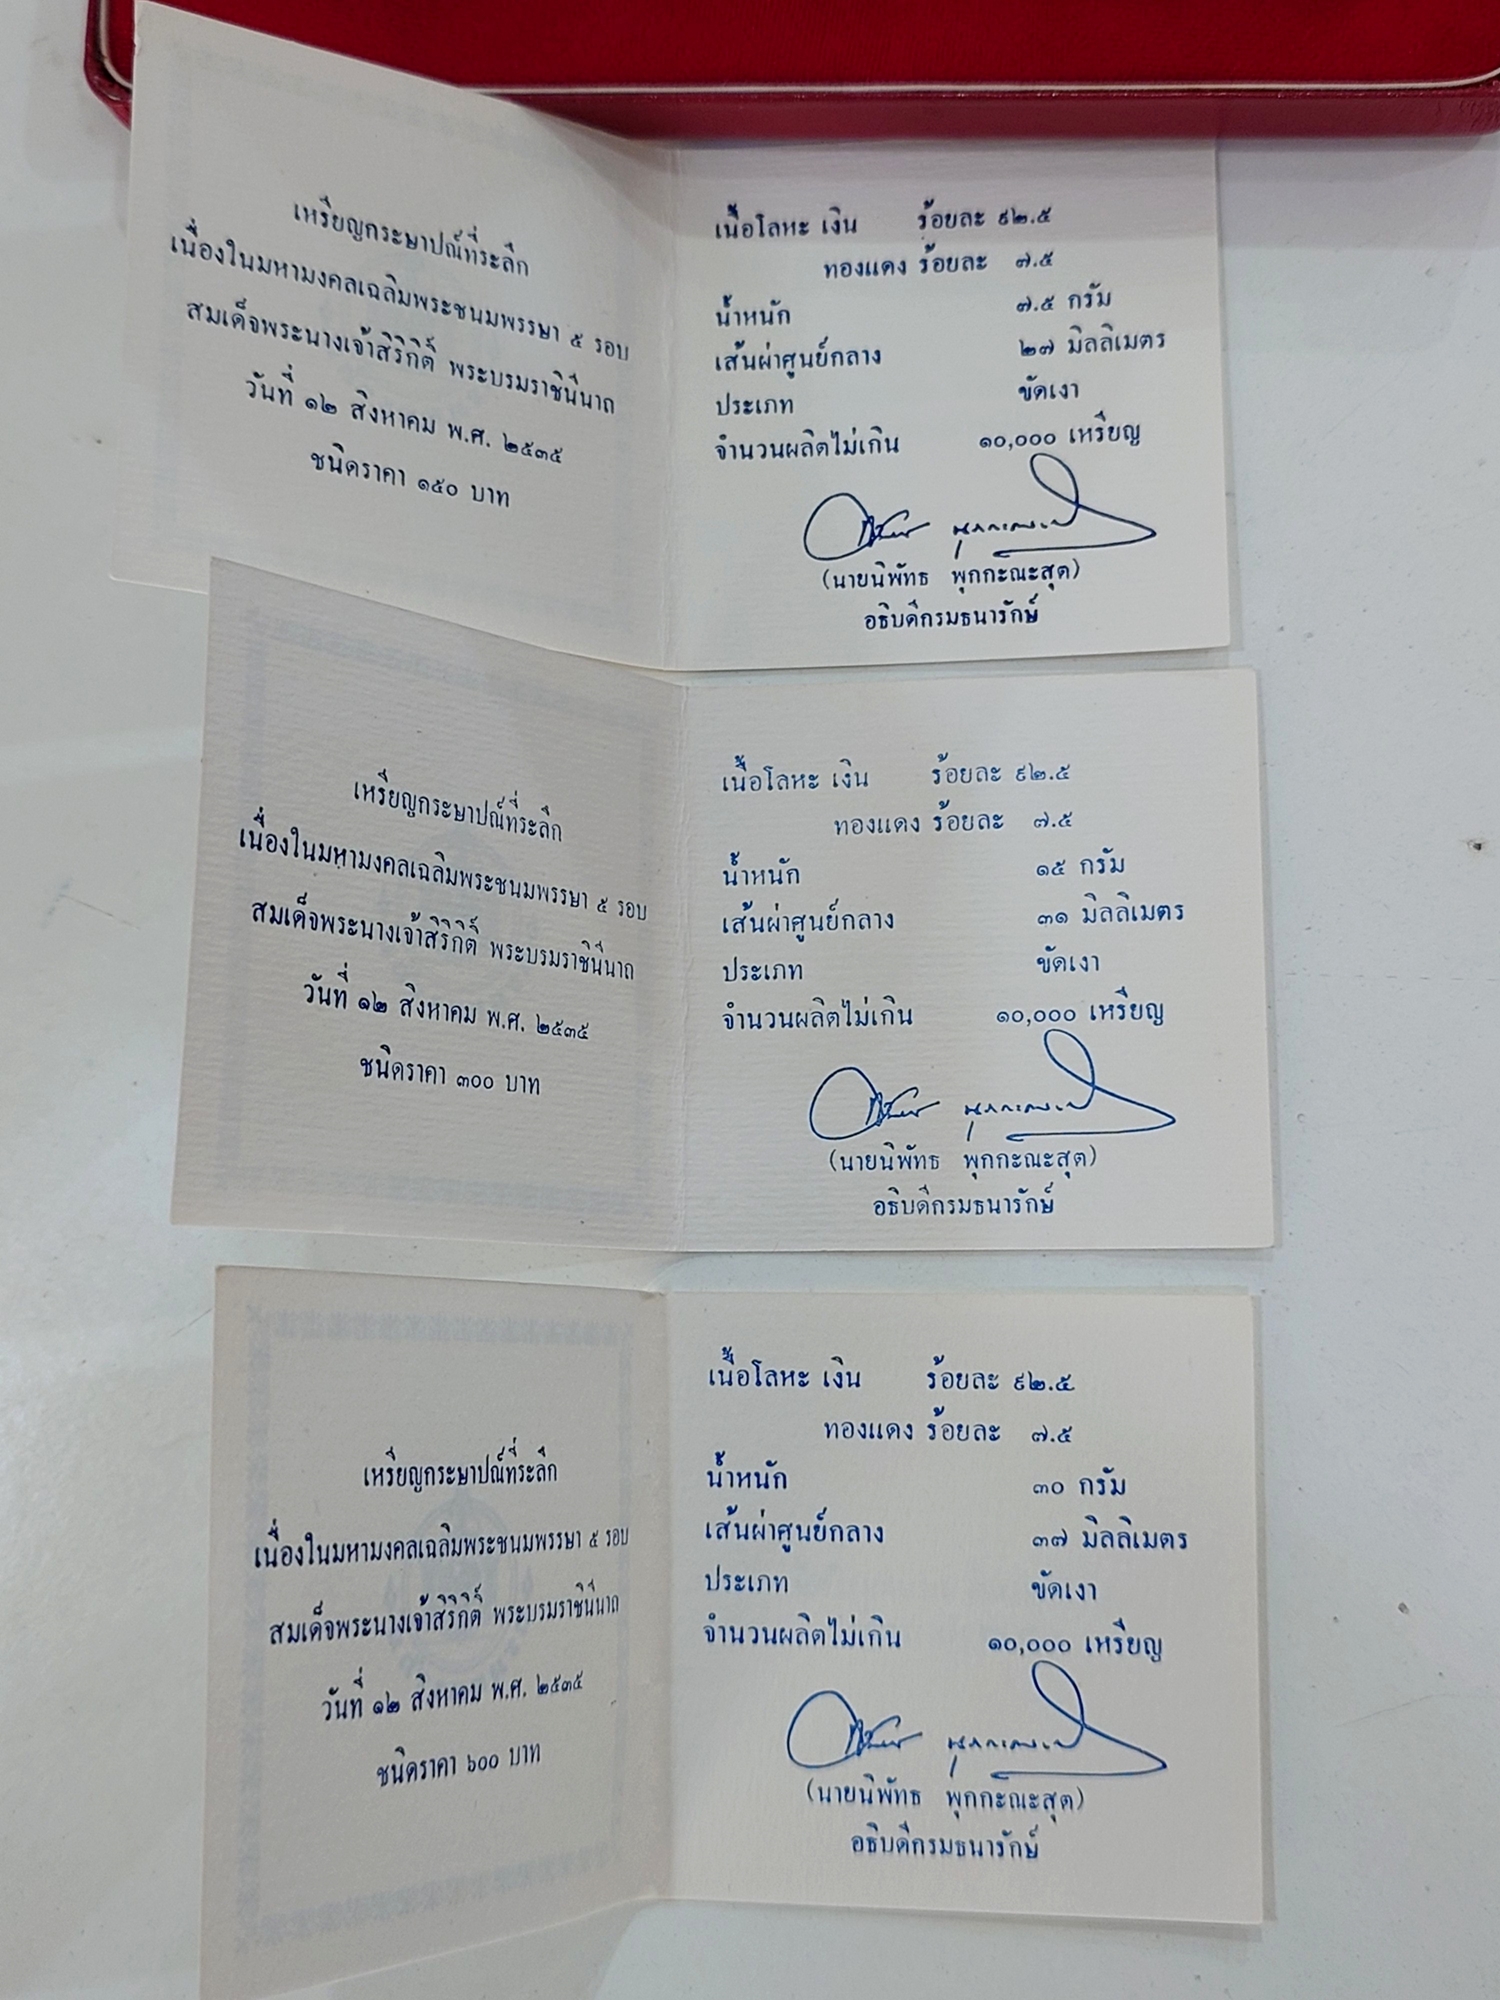 เหรียญกระษาปณ์ที่ระลึก
เนื่องในมหามงคลเฉลิมพระชนมพรรษา ๕ รอบ
สมเด็จพระนางเจ้าสิริกิติ์ พระบรมราชินีนาถ
วันที่ ๑๒ สิงหาคม พ.ศ. ๒๕๓๕
ชนิดราคา ๑๕๐ บาท
เนื้อโลหะ เงิน ร้อยละ ๙๒.๕
ทองแดง ร้อยละ ๗.๕
น้ำหนัก ๗.๕ กรัม
เส้นผ่าศูนย์กลาง ๒๗ มิลลิเมตร
ประเภท ขัดเงา
จำนวนผลิตไม่เกิน ๑๐,๐๐๐ เหรียญ
(นายนิพัทธ พุกกะณะสุต)
อธิบดีกรมธนารักษ์
เหรียญกระษาปณ์ที่ระลึก
เนื่องในมหามงคลเฉลิมพระชนมพรรษา ๕ รอบ
สมเด็จพระนางเจ้าสิริกิติ์ พระบรมราชินีนาถ
วันที่ ๑๒ สิงหาคม พ.ศ. ๒๕๓๕
ชนิดราคา ๓๐๐ บาท
เนื้อโลหะ เงิน ร้อยละ ๙๒.๕
ทองแดง ร้อยละ ๗.๕
น้ำหนัก ๑๕ กรัม
เส้นผ่าศูนย์กลาง ๓๑ มิลลิเมตร
ประเภท ขัดเงา
จำนวนผลิตไม่เกิน ๑๐,๐๐๐ เหรียญ
(นายนิพัทธ พุกกะณะสุต)
อธิบดีกรมธนารักษ์
เหรียญกระษาปณ์ที่ระลึก
เนื่องในมหามงคลเฉลิมพระชนมพรรษา ๕ รอบ
สมเด็จพระนางเจ้าสิริกิติ์ พระบรมราชินีนาถ
วันที่ ๑๒ สิงหาคม พ.ศ. ๒๕๓๕
ชนิดราคา ๖๐๐ บาท
เนื้อโลหะ เงิน ร้อยละ ๙๒.๕
ทองแดง ร้อยละ ๗.๕
น้ำหนัก ๓๐ กรัม
เส้นผ่าศูนย์กลาง ๓๗ มิลลิเมตร
ประเภท ขัดเงา
จำนวนผลิตไม่เกิน ๑๐,๐๐๐ เหรียญ
(นายนิพัทธ พุกกะณะสุต)
อธิบดีกรมธนารักษ์